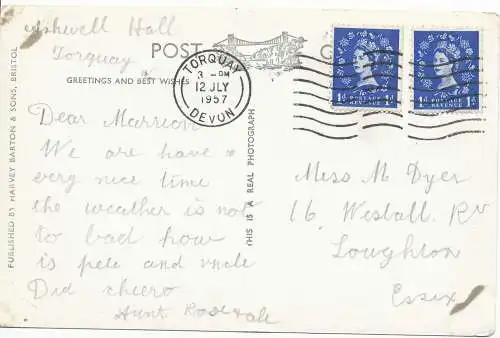 Ashwell Hall
Torquay
POST C
GREETINGS AND BEST WISHES
TORQUAY
3 - PM
12 JLY
1957
DEVON
1D POSTAGE REVENUE 1D
1D POSTAGE REVENUE 1D
PUBLISHED BY HARVEY BARTON & SONS, BRISTOL
THIS IS A REAL PHOTOGRAPH
Dear Marrion
We are have a
very nice time
the weather is not
to bad how
is pete and uncle
Did cheero
Aunt Rose
Mess M Dyer
16 Westall Rd
Loughton
Essex